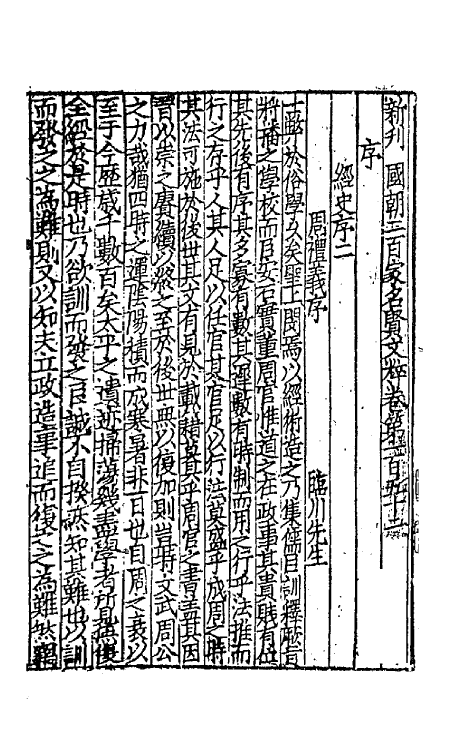 新刊 國朝二百家名賢文粹卷第一百五十二
序
經史序二
周禮義序 臨川先生
士弊於俗學久矣聖上閔焉以經術造之乃集儒臣訓釋厥旨
將播之學校而臣安石實董周官惟道之在政事其貴賤有位
其先後有序其多寡有數其遲數有時制而用之行乎法推而
行之存乎人其人足以任官其官足以行法莫盛乎成周之時
其法可施於後世其文有見於載籍莫具乎周官之書蓋其因
習以崇之賡續以終之至於後世無以復加則豈特文武周公
之力哉猶四時之運陰陽積而成寒暑非一日也自周之衰以
至于今歷歲千數百矣太平之遺迹掃蕩幾盡學者所見無復
全經於是時也乃欲訓而發之臣誠不自揆然知其難也以訓
而發之之為難則又以知夫立政造事追而復之之為難然竊